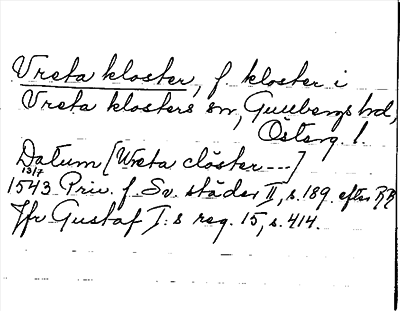 Vreta kloster, f. kloster i
Vreta klosters sn, Gullbergs hd,
Österg. l.
Datum [Wreta clöster ---]
13/7
1543 Priv. f. Sv. städer II, s. 189. efter RR
Jfr Gustaf I:s reg. 15, s. 414.